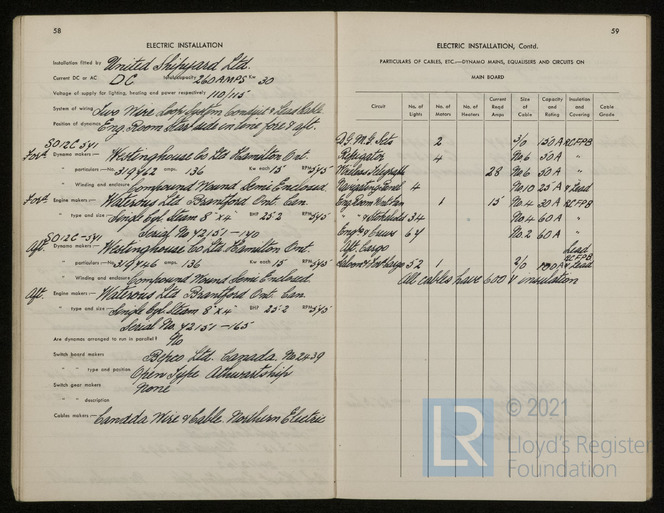 58
ELECTRIC INSTALLATION
Installation fitted by United Shipyard Ltd.
Current DC or AC DC total capacity 260 AMPS 30
Voltage of supply for lighting, heating and power respectively 110/115
System of wiring Two Wire Loop System Conduit & Lead Cable
Position of dynamos Eng. Room Star side in line fore & aft.
SO12C SY1
Fort Dynamo makers— Westinghouse Co Ltd Hamilton Ont.
" particulars—No 319462 amps. 136 Kw each 15 RPM 545
" Winding and enclosure Compound Wound Semi Enclosed.
Fort. Engine makers— Waterous Ltd Brantford Ont. Can.
" type and size— Single Cyl Steam 8" x 4" BHP 25.2 RPM 545
Serial No 42151—140
SO12C-SY1
Aft. Dynamo makers— Westinghouse Co Ltd Hamilton Ont.
" particulars—No 319446 amps. 136 Kw each 15 RPM 545
" Winding and enclosure Compound Wound Semi Enclosed.
Aft. Engine makers— Waterous Ltd Brantford Ont. Can.
" type and size— Single Cyl Steam 8" x 4" BHP 25.2 RPM 545
Serial No. 42151—165
Are dynamos arranged to run in parallel? No
Switch board makers Bepco Ltd. Canada. No 2439
" " type and position Open Type Athwartship
Switch gear makers None
" " description
Cables makers— Canada Wire & Cable Northern Electric
59
ELECTRIC INSTALLATION, Contd.
PARTICULARS OF CABLES, ETC.—DYNAMO MAINS, EQUALISERS AND CIRCUITS ON
MAIN BOARD
Circuit No. of Lights No. of Motors No. of Heaters Current Read Amps Size of Cable Capacity and Rating Insulation and Covering Cable Grade
D.G. M.G. Sets 2 3/0 150A RCFPB
Refrigator 4 No 6 50A "
Wireless Telegraph 28 No 6 50A "
Navigating 4 No 10 25A & Lead
Eng. Room 1 15 No 4 30A RCFPB
" " & Stokehold 34 No 4 60A "
Engrs & Crews 64 No 2 60A "
Aft Cargo Lead
& For Cargo 52 1 2/0 RCFPB & Lead
All cables have 600 v insulation
LR
© 2021
Lloyd's Register
Foundation